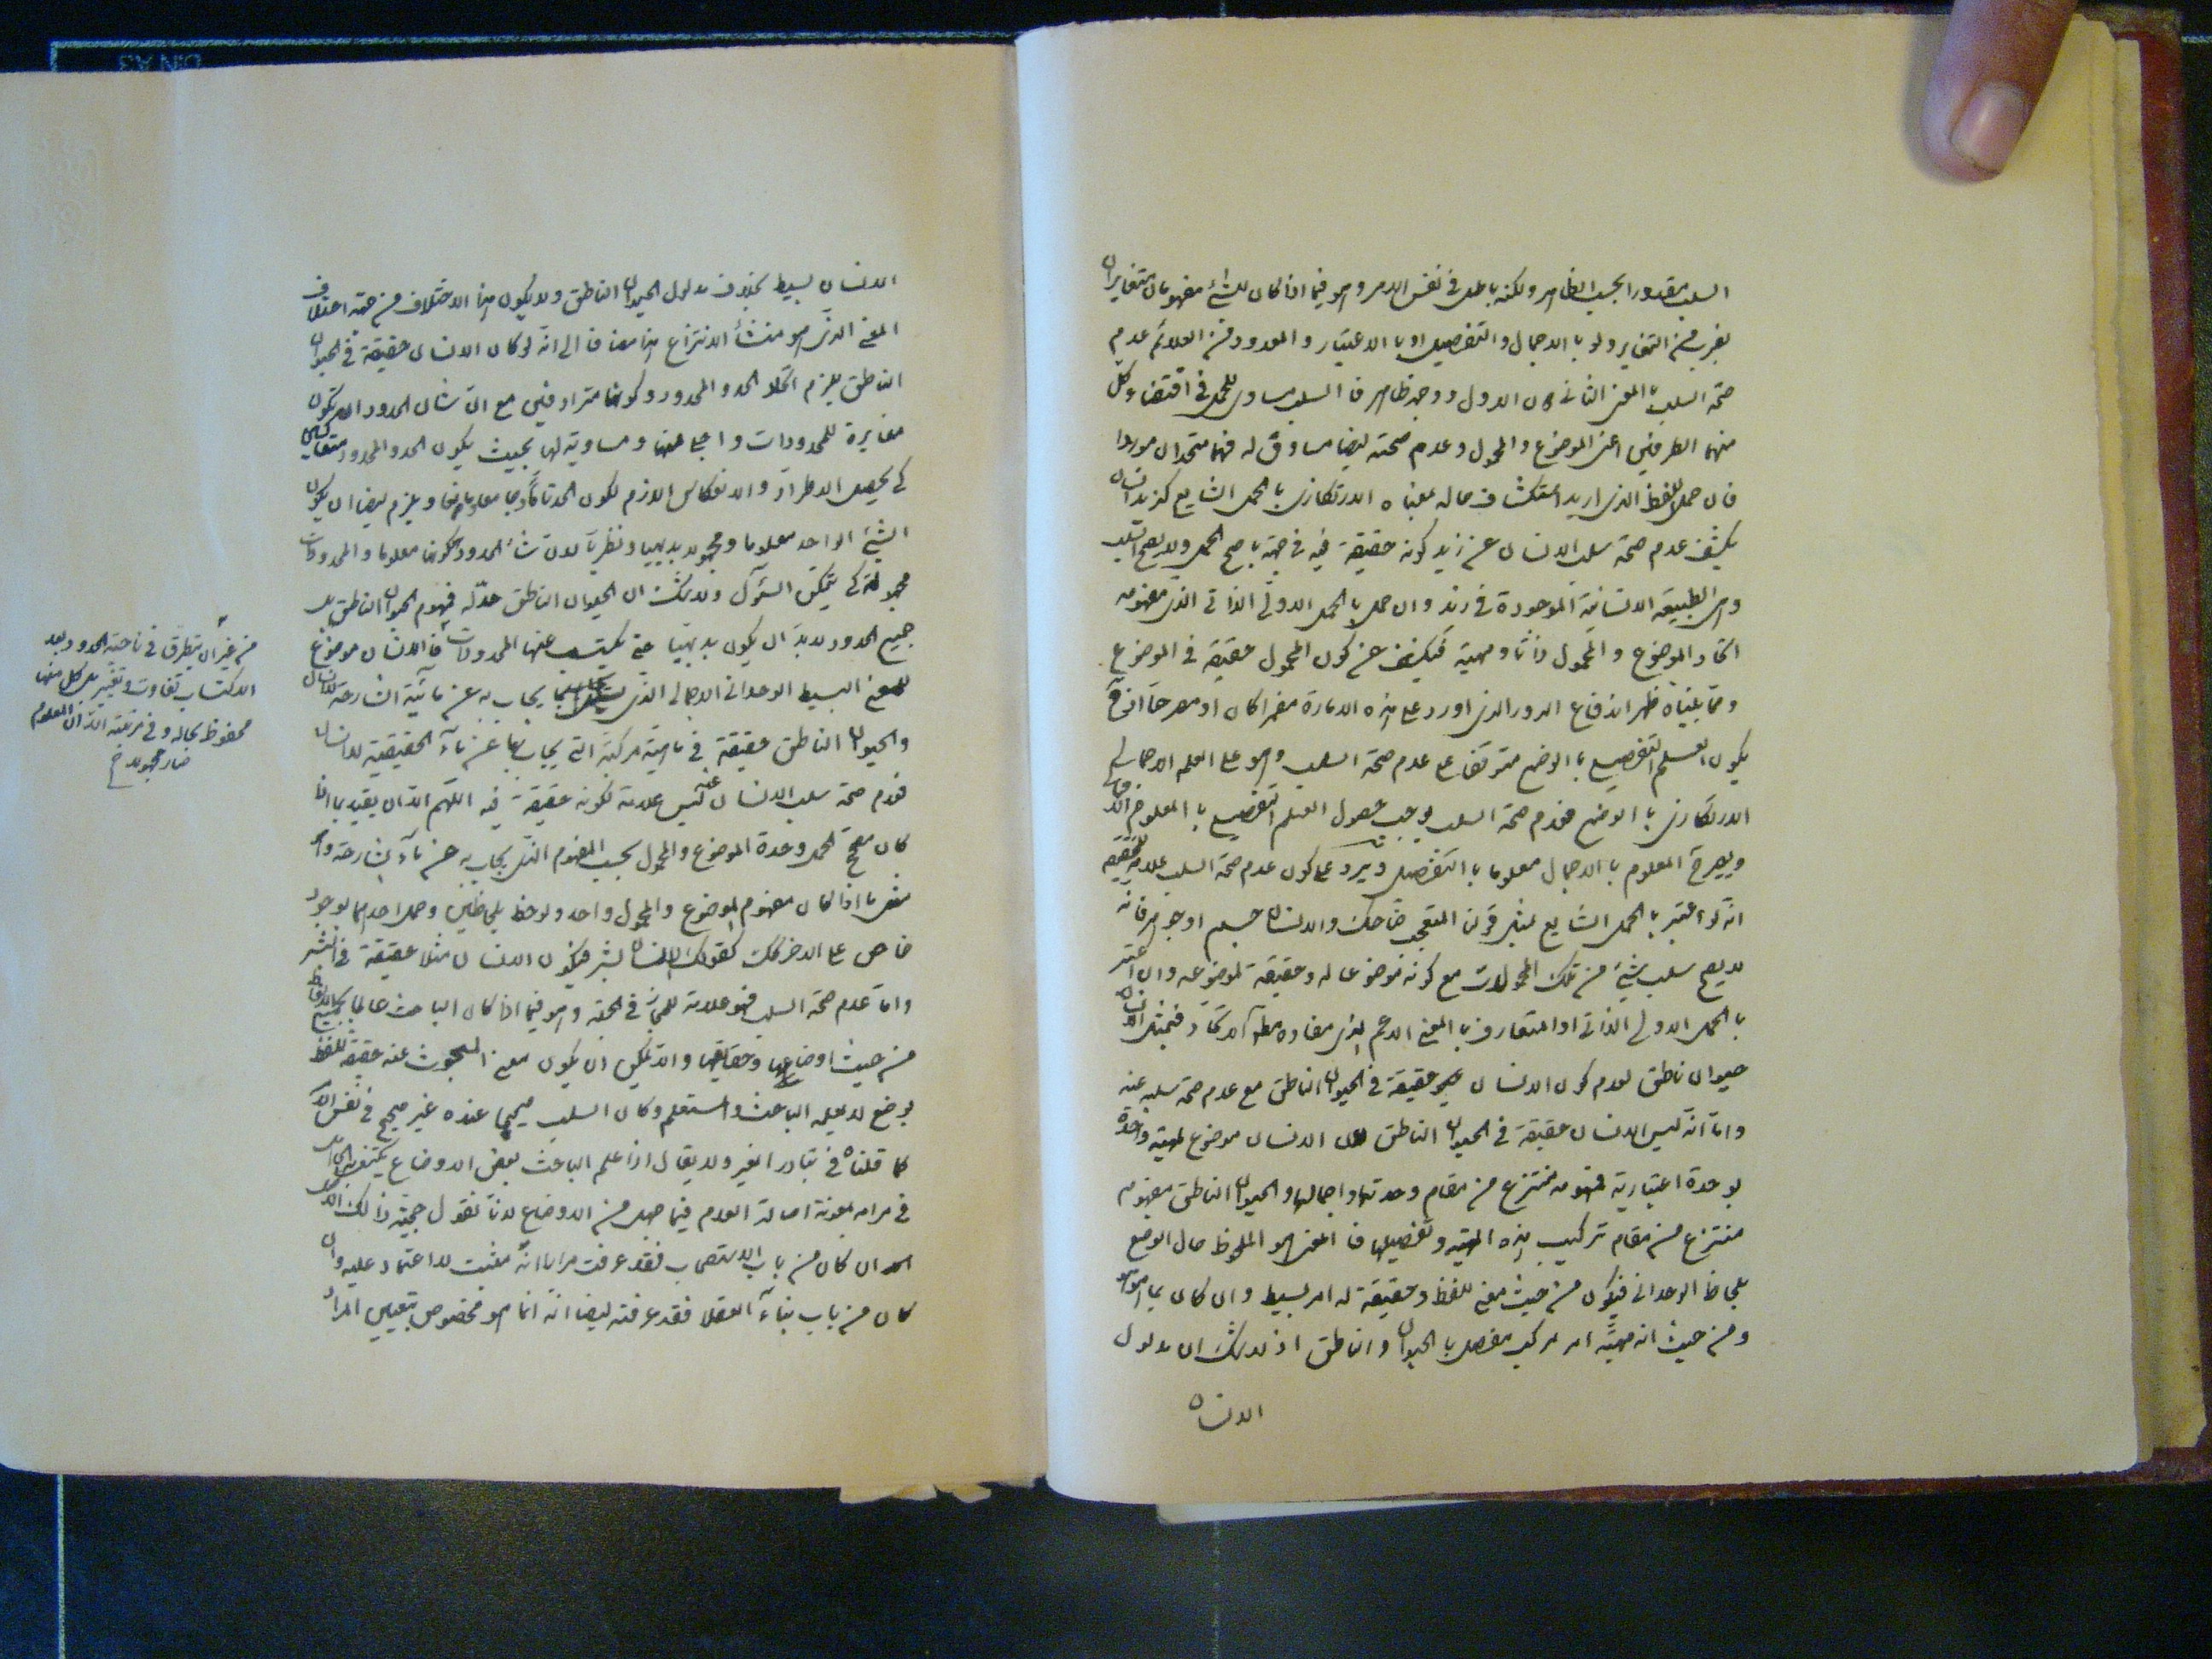 السلب مقدورا بحسب الظاهر ولكنه باطل فى نفس الامر وهو فيما اذا كان للشئ مفهومان متغايران
بضرب من التغاير ولو بالاجمال والتفصيل او بالاعتبار والمعدود من العلائم عدم
صحة السلب بالمعنى الثانى لان الاول ووجه ظاهر فان السلب مساوى للحمل فى اقتضاء كل
منهما الطرفين اعنى الموضوع والمحمول وعدم صحته ايضا مساوق له فهما متحدان موردا
فان حمل اللفظ الذى اريد استكشاف حاله بمعناه الارتكازى بالحمل الشايع كزيد انسان
يكشف عدم صحة سلب الانسان عن زيد كونه حقيقة فيه فى جهة بها صح الحمل ولا يصح السلب
وهى الطبيعة الانسانية الموجودة فى زيد وان حمل بالحمل الاولى الذاتى الذى مفهومه
اتحاد الموضوع والمحمول ذاتا ومهية فيكشف عن كون المحمول حقيقة فى الموضوع
ومما بيناه ظهر اندفاع الدور الذى اورد على هذه الامارة مضمرا كان او مصرحا اذ
يكون العلم التفصيلى بالوضع متوقفا على عدم صحة السلب وهو على العلم الاجمالى
الارتكازى بالوضع فعدم صحة السلب يوجب حصول العلم التفصيلى بالمعلوم
ويصير المعلوم بالاجمال معلوما بالتفصيل ويرد على كون عدم صحة السلب علامة للحقيقة
انه لو اعتبر بالحمل الشايع لمثل قولنا المتعجب ضاحك والانسان جسم او جوهر فانه
لا يصح سلب شئ من تلك المحمولات مع كونه موضوعا له وحقيقة لموضوعه وان اعتبر
بالحمل الاولى الذاتى او المتعارف بالمعنى الاعم الذى مفاده مطلق الاتحاد فبمثل الانسان
حيوان ناطق لعدم كون الانسان حقيقة فى الحيوان الناطق مع عدم صحة سلبه عنه
واما انه ليس الانسان حقيقة فى الحيوان الناطق لان الانسان موضوع لمهية واحدة
بوحدة اعتبارية فمفهومه منتزع من مقام وحدتها واجمالها والحيوان الناطق مفهومه
منتزع من مقام تركيب هذه المهية وتفصيلها فالمعنى هو الملحوظ حال الوضع
بلحاظ الوحدانى فيكون من حيث معنى اللفظ وحقيقة له امر بسيط وان كان بما هو هو
ومن حيث انه مهية امر مركب مفصل بالحيوان والناطق اذ لا شك ان مدلول
الانسان
الانسان بسيط بخلاف مدلول الحيوان الناطق ولا يكون هذا الاختلاف من جهة اختلاف
المعنى الذى هو منشأ الانتزاع هذا مضافا الى انه لو كان الانسان حقيقة فى الحيوان
الناطق يلزم اتحاد الحد والمحدود وكونهما مترادفين مع ان شان الحدود ان تكون
مغايرة للمحدودات واجلى منها ومساوية لها بحيث يكون الحد والمحدود متعاكسين
كى يحصل الاطراد والانعكاس اللازم لكون الحد تاما جامعا ومانعا ويلزم ايضا ان يكون
الشئ الواحد معلوما ومجهولا بديهيا ونظريا لان شان الحدود كونها معلوما والمحدودات
مجهولة كى يتمكن السؤال ولا شك ان الحيوان الناطق حد له فمفهوم الحيوان الناطق بل
جميع الحدود لا بد ان يكون بديهيا حتى يكتسب عنها المحدودات فالانسان موضوع
للمعنى البسيط الوحدانى الاجمالى الذى يجاب به عن مائية الشارحة للانسان
والحيوان الناطق حقيقة فى ماهية مركبة التى يجاب بها عن ماء الحقيقية للانسان
فعدم صحة سلب الانسان عنه ليس علامة لكونه حقيقة فيه اللهم الا ان يقيد بما اذا
كان مصحح الحمل وحدة الموضوع والمحمول بحسب المفهوم الذى يجاب به عن ماء الشارحة
مفهوما اذا كان مفهوم الموضوع والمحمول واحد ولوحظ بلحاظين وحمل احدهما بوجود
خاص على الاخر كقولك الانسان بشر فيكون الانسان مثلا حقيقة فى البشر
واما عدم صحة السلب فهو علامة للمجاز فى الجملة وهو فيما اذا كان الباحث عالما بجميع الالفاظ
من حيث اوضاعها وحقايقها والا يمكن ان يكون معنى المبحوث عنه حقيقة للفظ
بوضع لا يعلمه الباحث والمستعلم وكان السلب صحيحا عنده غير صحيح فى نفس الامر
كما قلناه فى تبادر الغير ولا يقال اذا علم الباحث بعض الاوضاع يكتفى
فى مرامه بمعونة اصالة العدم فيما جهل من الاوضاع لانا نقول حجية ذلك الاصل
ان كان من باب الاستصحاب فقد عرفت مرارا انه مثبت لا اعتماد عليه وان
كان من باب بناء العقلا فقد عرفته ايضا انه انما هو مخصوص بتعيين المراد
من غير ان يتطرق فى ناحية الحدود بعد
الاكتساب تفاوت وتغيير بل كل منها
محفوظ بحاله وفى مرتبته الا ان المعلوم
صار مجهولا